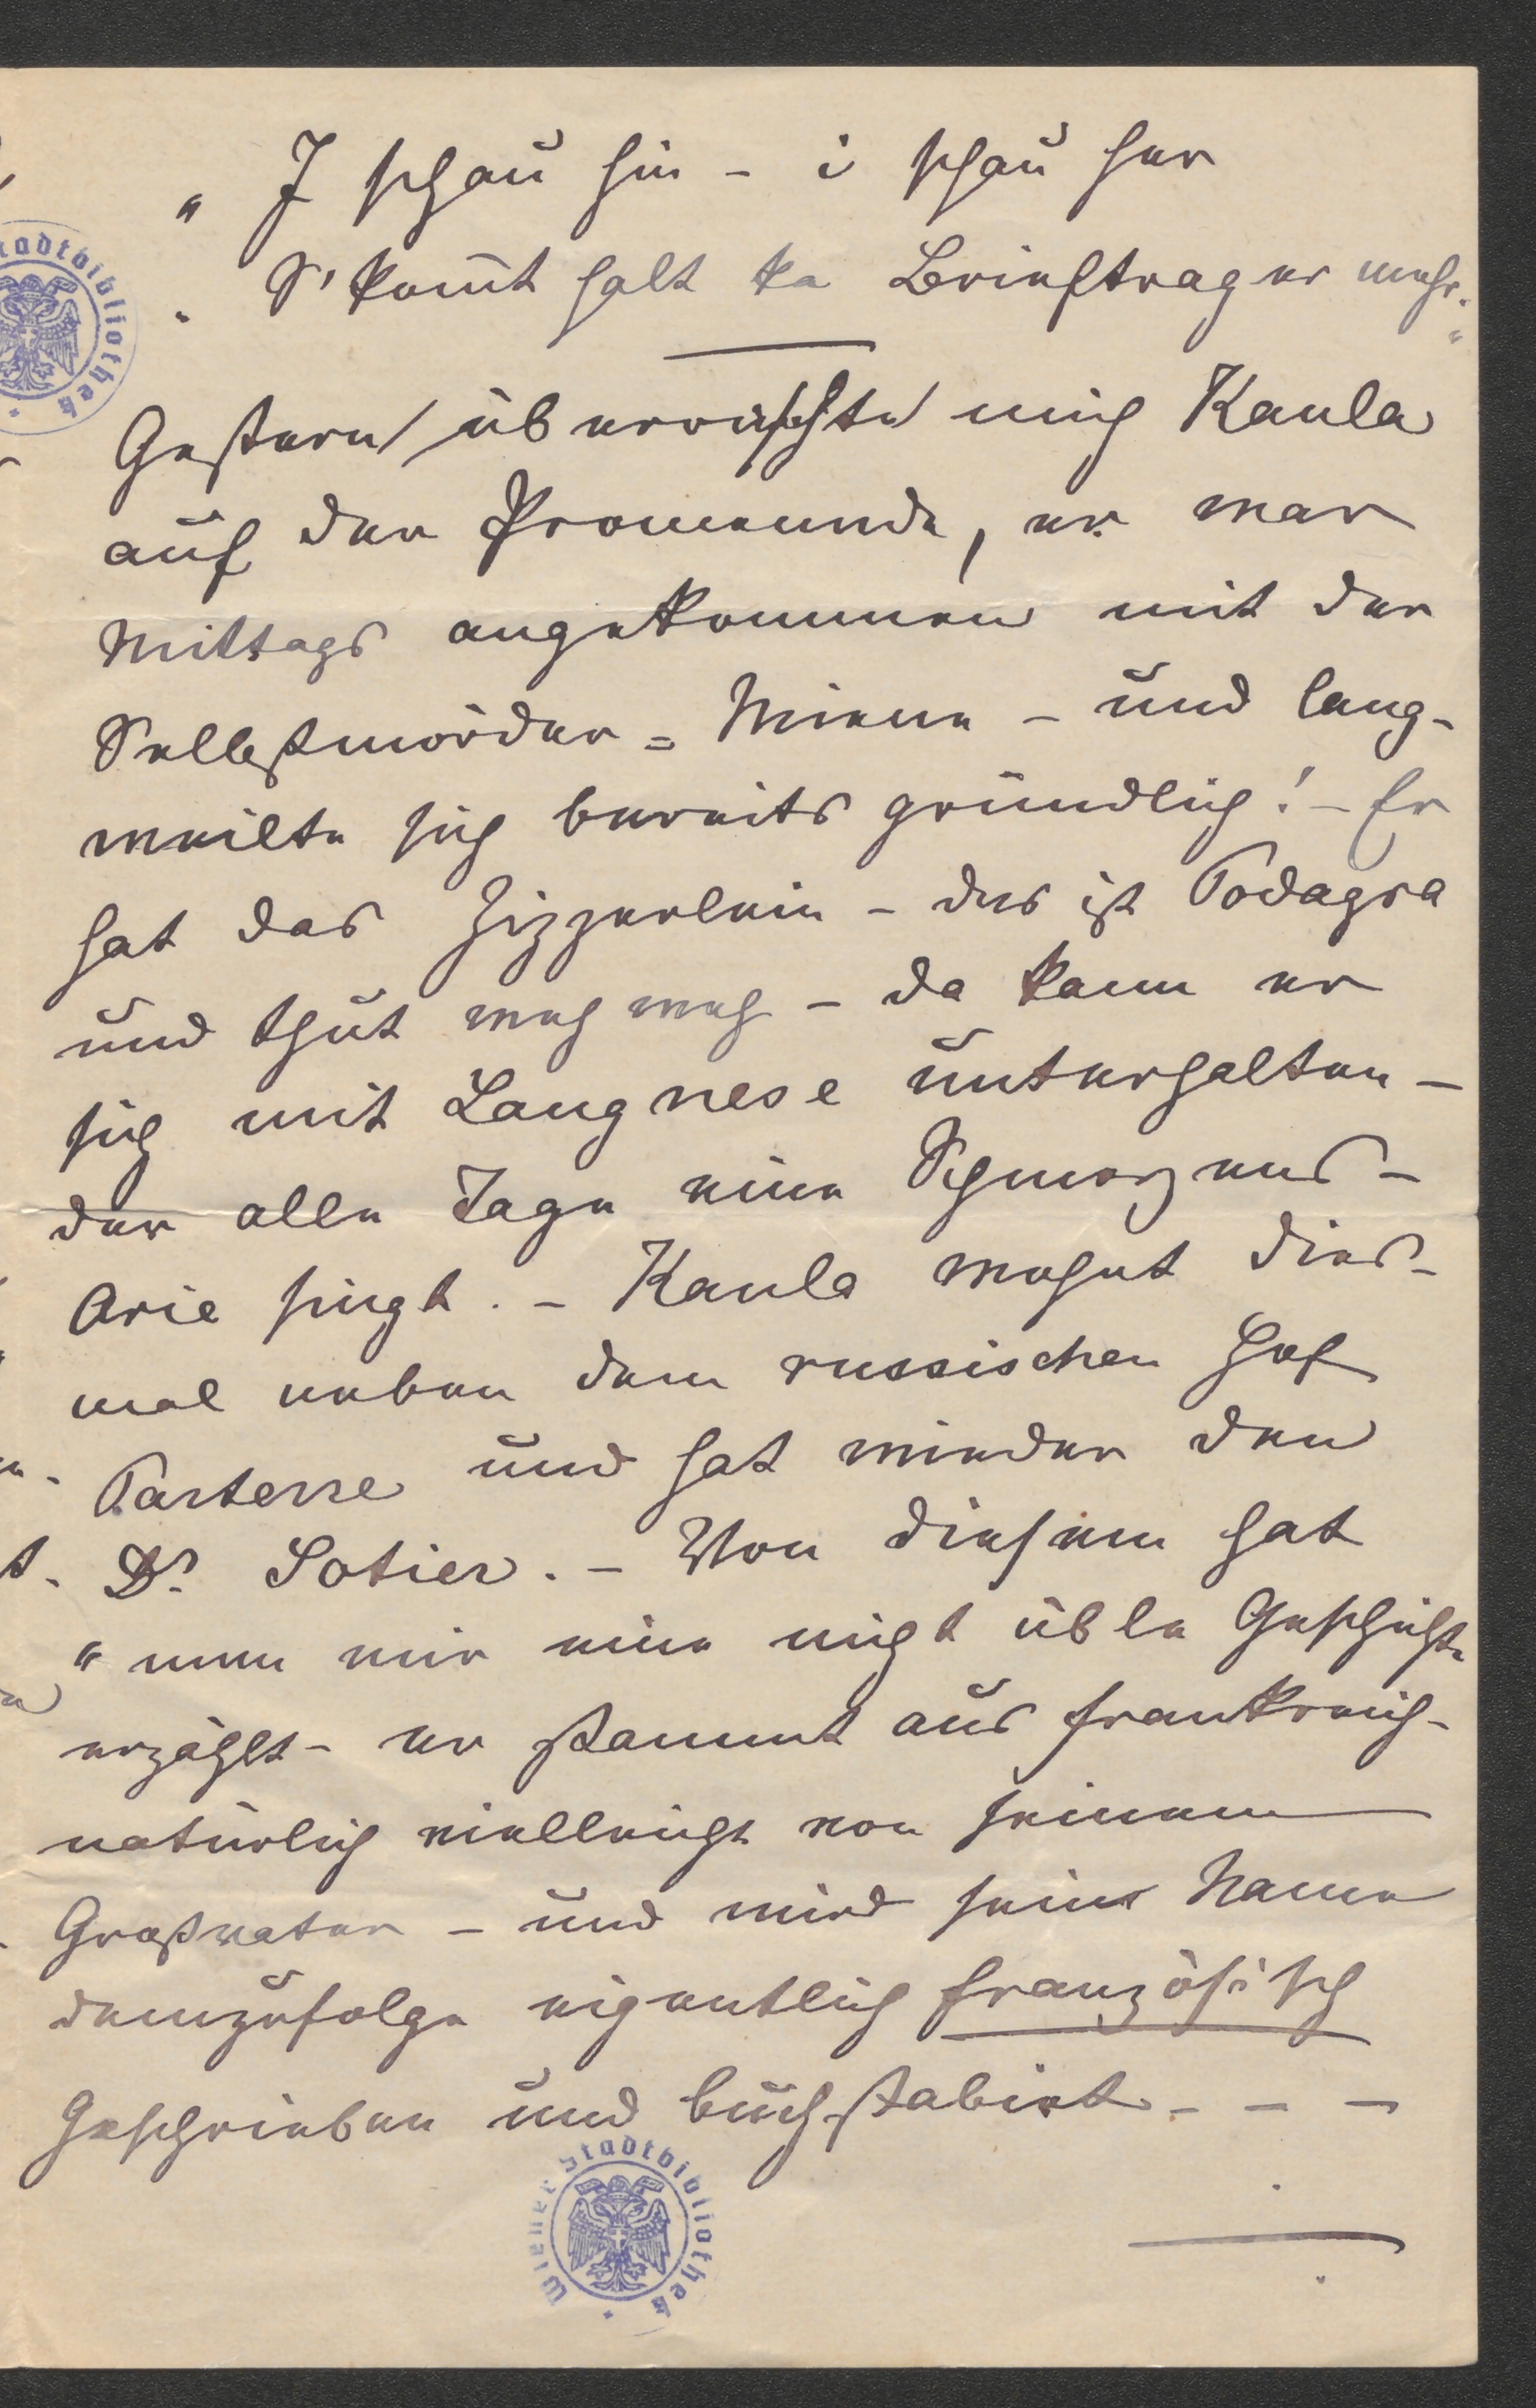 „ I schau hin – i schau her
„ S' komt halt ka Brieftrager mehr. "
Gestern überraschte mich Kaula
auf der Promenade, er war
Mittags angekommen mit der
Selbstmörder = Miene – und lang-
weilte sich bereits gründlich! – Er
hat das Zizzerlein – das ist Podagra
und thut weh weh – da kann er
sich mit Langnese unterhalten –
der alle Tage eine Schmerzens-
Arie singt. – Kaula wohnt dies-
mal neben dem russischen Hof
Parterre und hat wieder den
Dr. Sotier. – Von diesem hat
man mir eine nicht üble Geschichte
erzählt – er stammt aus Frankreich –
natürlich vielleicht von seinem
Großvater – und wird sein Name
demzufolge eigentlich französisch
Geschrieben und buchstabirt – – –
Wiener Stadtbibliothek